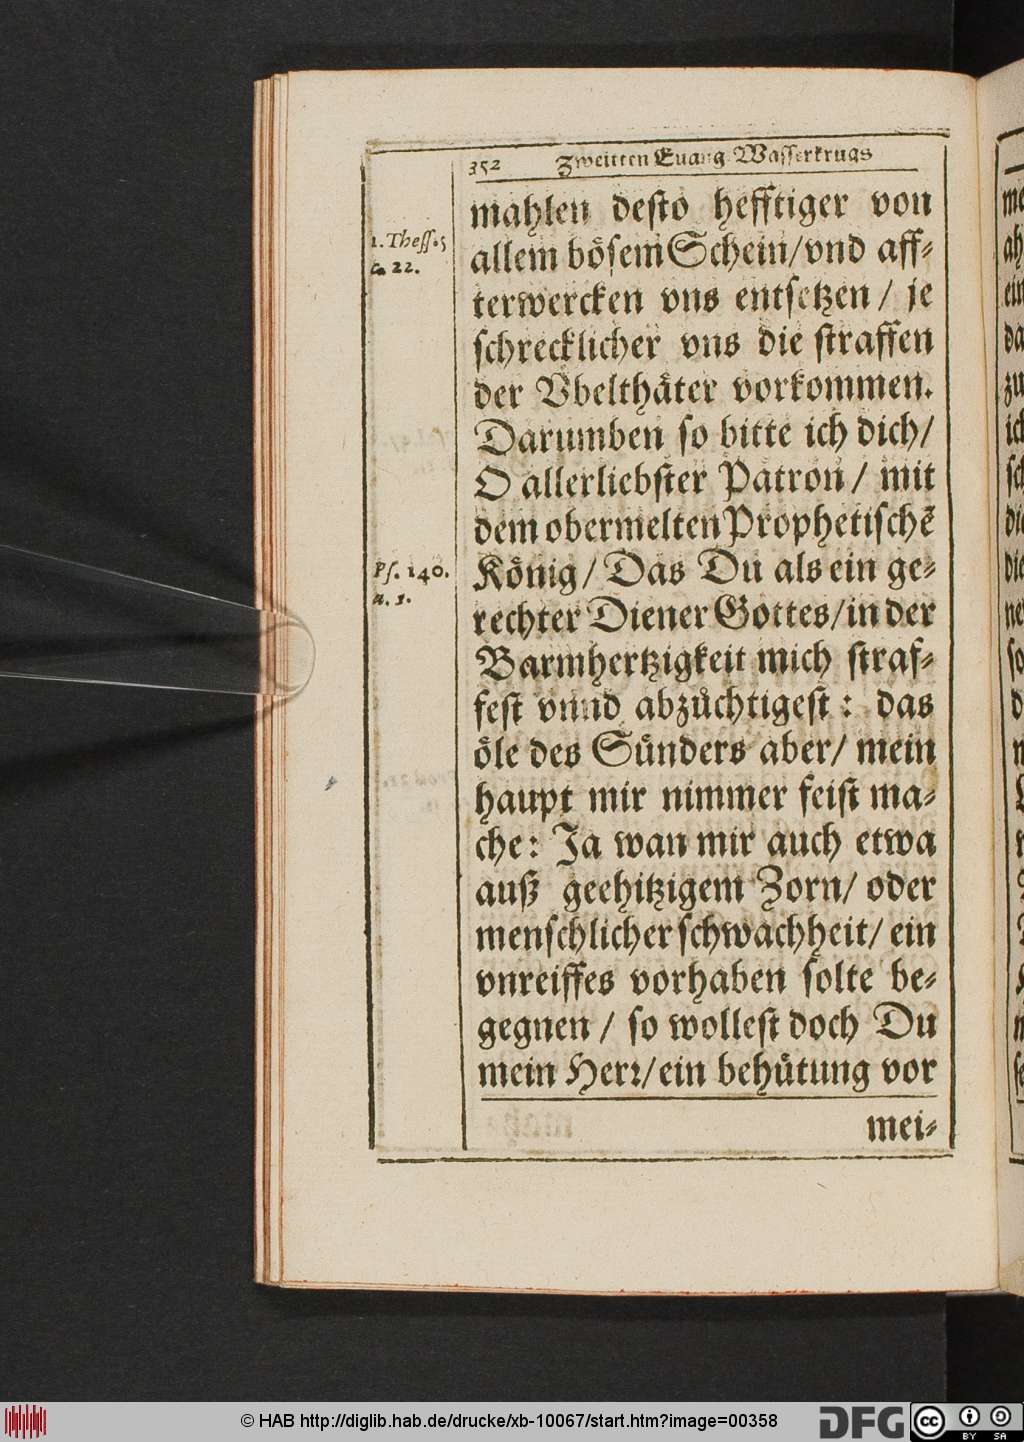 352 Zweitten Euang. Wasserkrugs
mahlen desto hefftiger von
1. Thess. 5
allem bösem Schein/ vnd aff-
c. 22.
terwercken vns entsetzen / je
schrecklicher vns die straffen
der Vbelthäter vorkommen.
Darumben so bitte ich dich/
O allerliebster Patron / mit
dem obermelten Prophetischē
Ps. 140.
König / Das Du als ein ge-
a. 1.
rechter Diener Gottes/ in der
Barmhertzigkeit mich straf-
fest vnnd abzüchtigest : das
öle des Sünders aber/ mein
haupt mir nimmer feist ma-
che: Ja wan mir auch etwa
auß geehitzigem Zorn/ oder
menschlicher schwachheit/ ein
vnreiffes vorhaben solte be-
gegnen / so wollest doch Du
mein Herr/ ein behütung vor
mei-
© HAB http://diglib.hab.de/drucke/xb-10067/start.htm?image=00358
DFG
cc BY SA